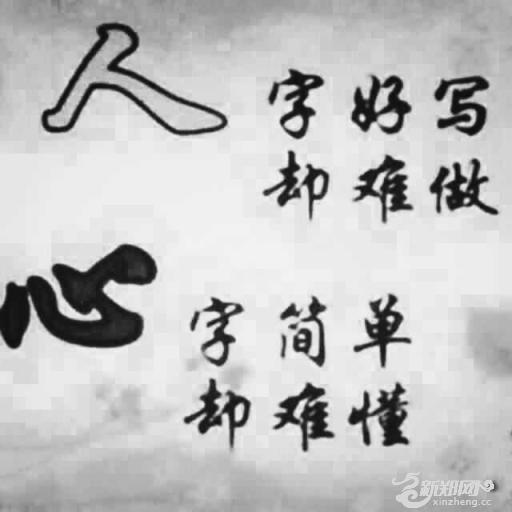 人
字好写
却难做
心
字简单
却难懂
新郑网
xinzheng.cc